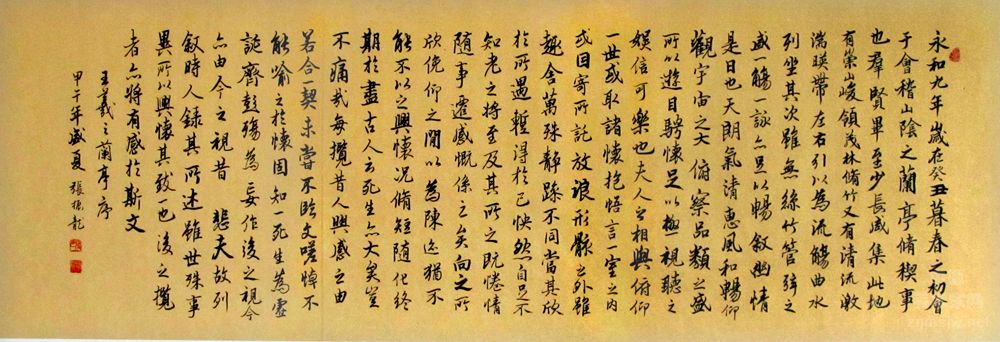 永和九年歲在癸丑暮春之初會
于會稽山陰之蘭亭脩稧事
也羣賢畢至少長咸集此地
有崇山峻領茂林脩竹又有清流激
湍暎帶左右引以為流觴曲水
列坐其次雖無絲竹管弦之
盛一觴一詠亦足以暢敘幽情
是日也天朗氣清惠風和暢仰
觀宇宙之大俯察品類之盛
所以遊目騁懷足以極視聽之
娛信可樂也夫人之相與俯仰
一世或取諸懷抱悟言一室之內
或因寄所託放浪形骸之外雖
趣舍萬殊靜躁不同當其欣
於所遇暫得於己怏然自足不
知老之將至及其所之既惓情
隨事遷感慨係之矣向之所
欣俛仰之閒以為陳迹猶不
能不以之興懷況脩短隨化終
期於盡古人云死生亦大矣豈
不痛哉每攬昔人興感之由
若合一契未嘗不臨文嗟悼不
能喻之於懷固知一死生為虛
誕齊彭殤為妄作後之視今
亦由今之視昔 悲夫故列
敘時人錄其所述雖世殊事
異所以興懷其致一也後之攬
者亦將有感於斯文
王羲之蘭亭序
甲午年盛夏 張